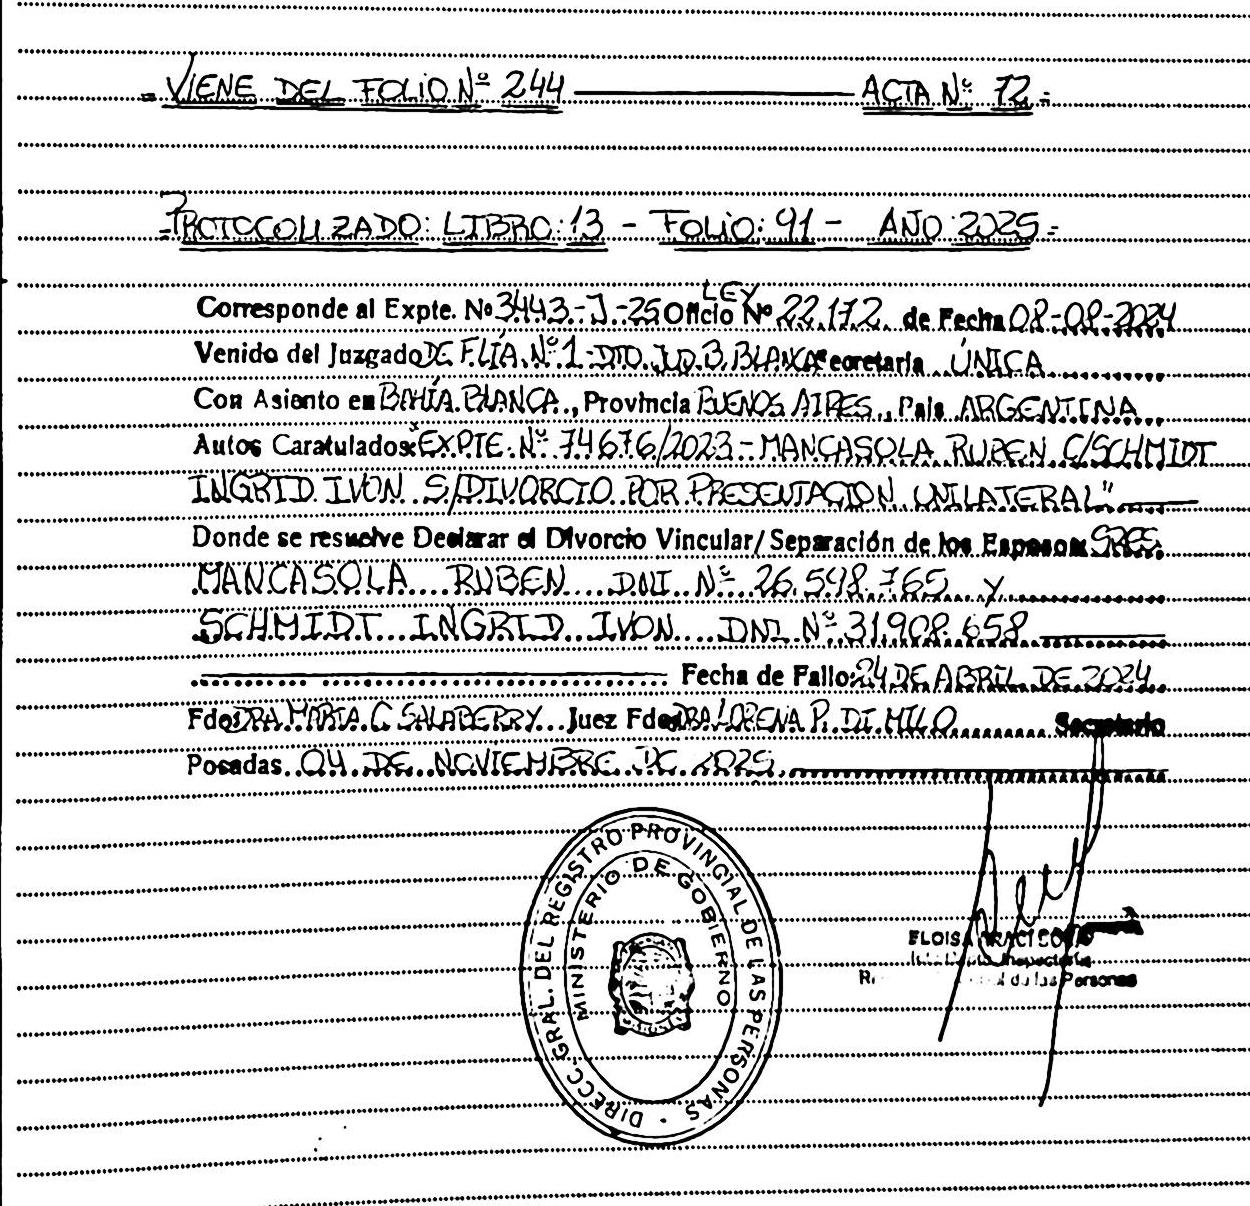 = VIENE DEL FOLIO Nº 244 ——— ACTA Nº 72 =
= PROTOCOLIZADO: LIBRO: 13 - FOLIO: 91 - AÑO 2025 =
LEY
Corresponde al Expte. Nº 3443-J-25 Oficio Nº 22.172 de Fecha 08-08-2024
Venido del Juzgado DE FLIA. Nº 1 - DTO. JUD. B. BLANCA Secretaría ÚNICA
Con Asiento en BAHÍA BLANCA, Provincia BUENOS AIRES, País ARGENTINA
Autos Caratulados: "EXPTE. Nº 74676/2023 - MANCASOLA RUBEN C/SCHMIDT
INGRID IVON S/DIVORCIO POR PRESENTACION UNILATERAL"
Donde se resuelve Declarar el Divorcio Vincular/Separación de los Esposos: SRES.
MANCASOLA RUBEN DNI Nº 26.598.765 y
SCHMIDT INGRID IVON DNI Nº 31.908.658
Fecha de Fallo: 24 DE ABRIL DE 2024
Fdo: DRA MARIA C. SALABERRY Juez Fdo: DRA LORENA P. DI MILO Secretario
Posadas 04 DE NOVIEMBRE DE 2025
DIRECC. GRAL. DEL REGISTRO PROVINCIAL DE LAS PERSONAS
MINISTERIO DE GOBIERNO
de las Personas